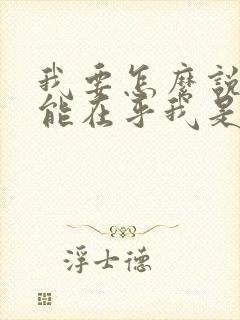 我要怎麽說
能在乎我是
浮士德